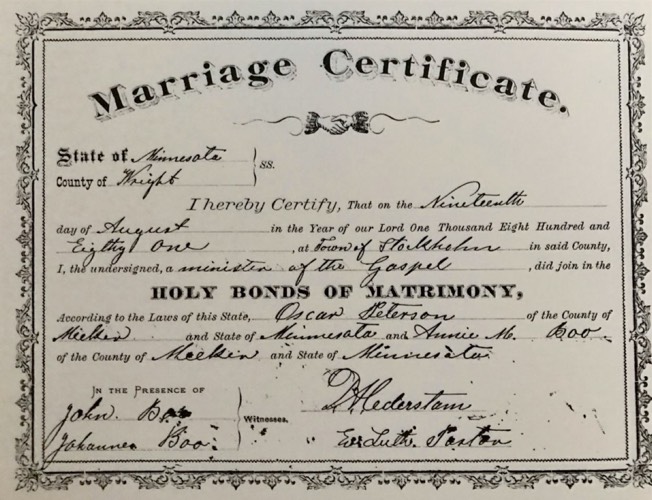 Marriage Certificate.
State of Minnesota
County of Wright } SS.
I hereby Certify, That on the Nineteenth
day of August in the Year of our Lord One Thousand Eight Hundred and
Eighty One, at Town of Stockholm in said County,
I, the undersigned, a minister of the Gospel, did join in the
HOLY BONDS OF MATRIMONY,
According to the Laws of this State, Oscar Peterson of the County of
Meeker and State of Minnesota and Annie M. Boo
of the County of Meeker and State of Minnesota
IN THE PRESENCE OF
John Boo
Johannes Boo } Witnesses.
Hederstam
Ev. Luth. Pastor